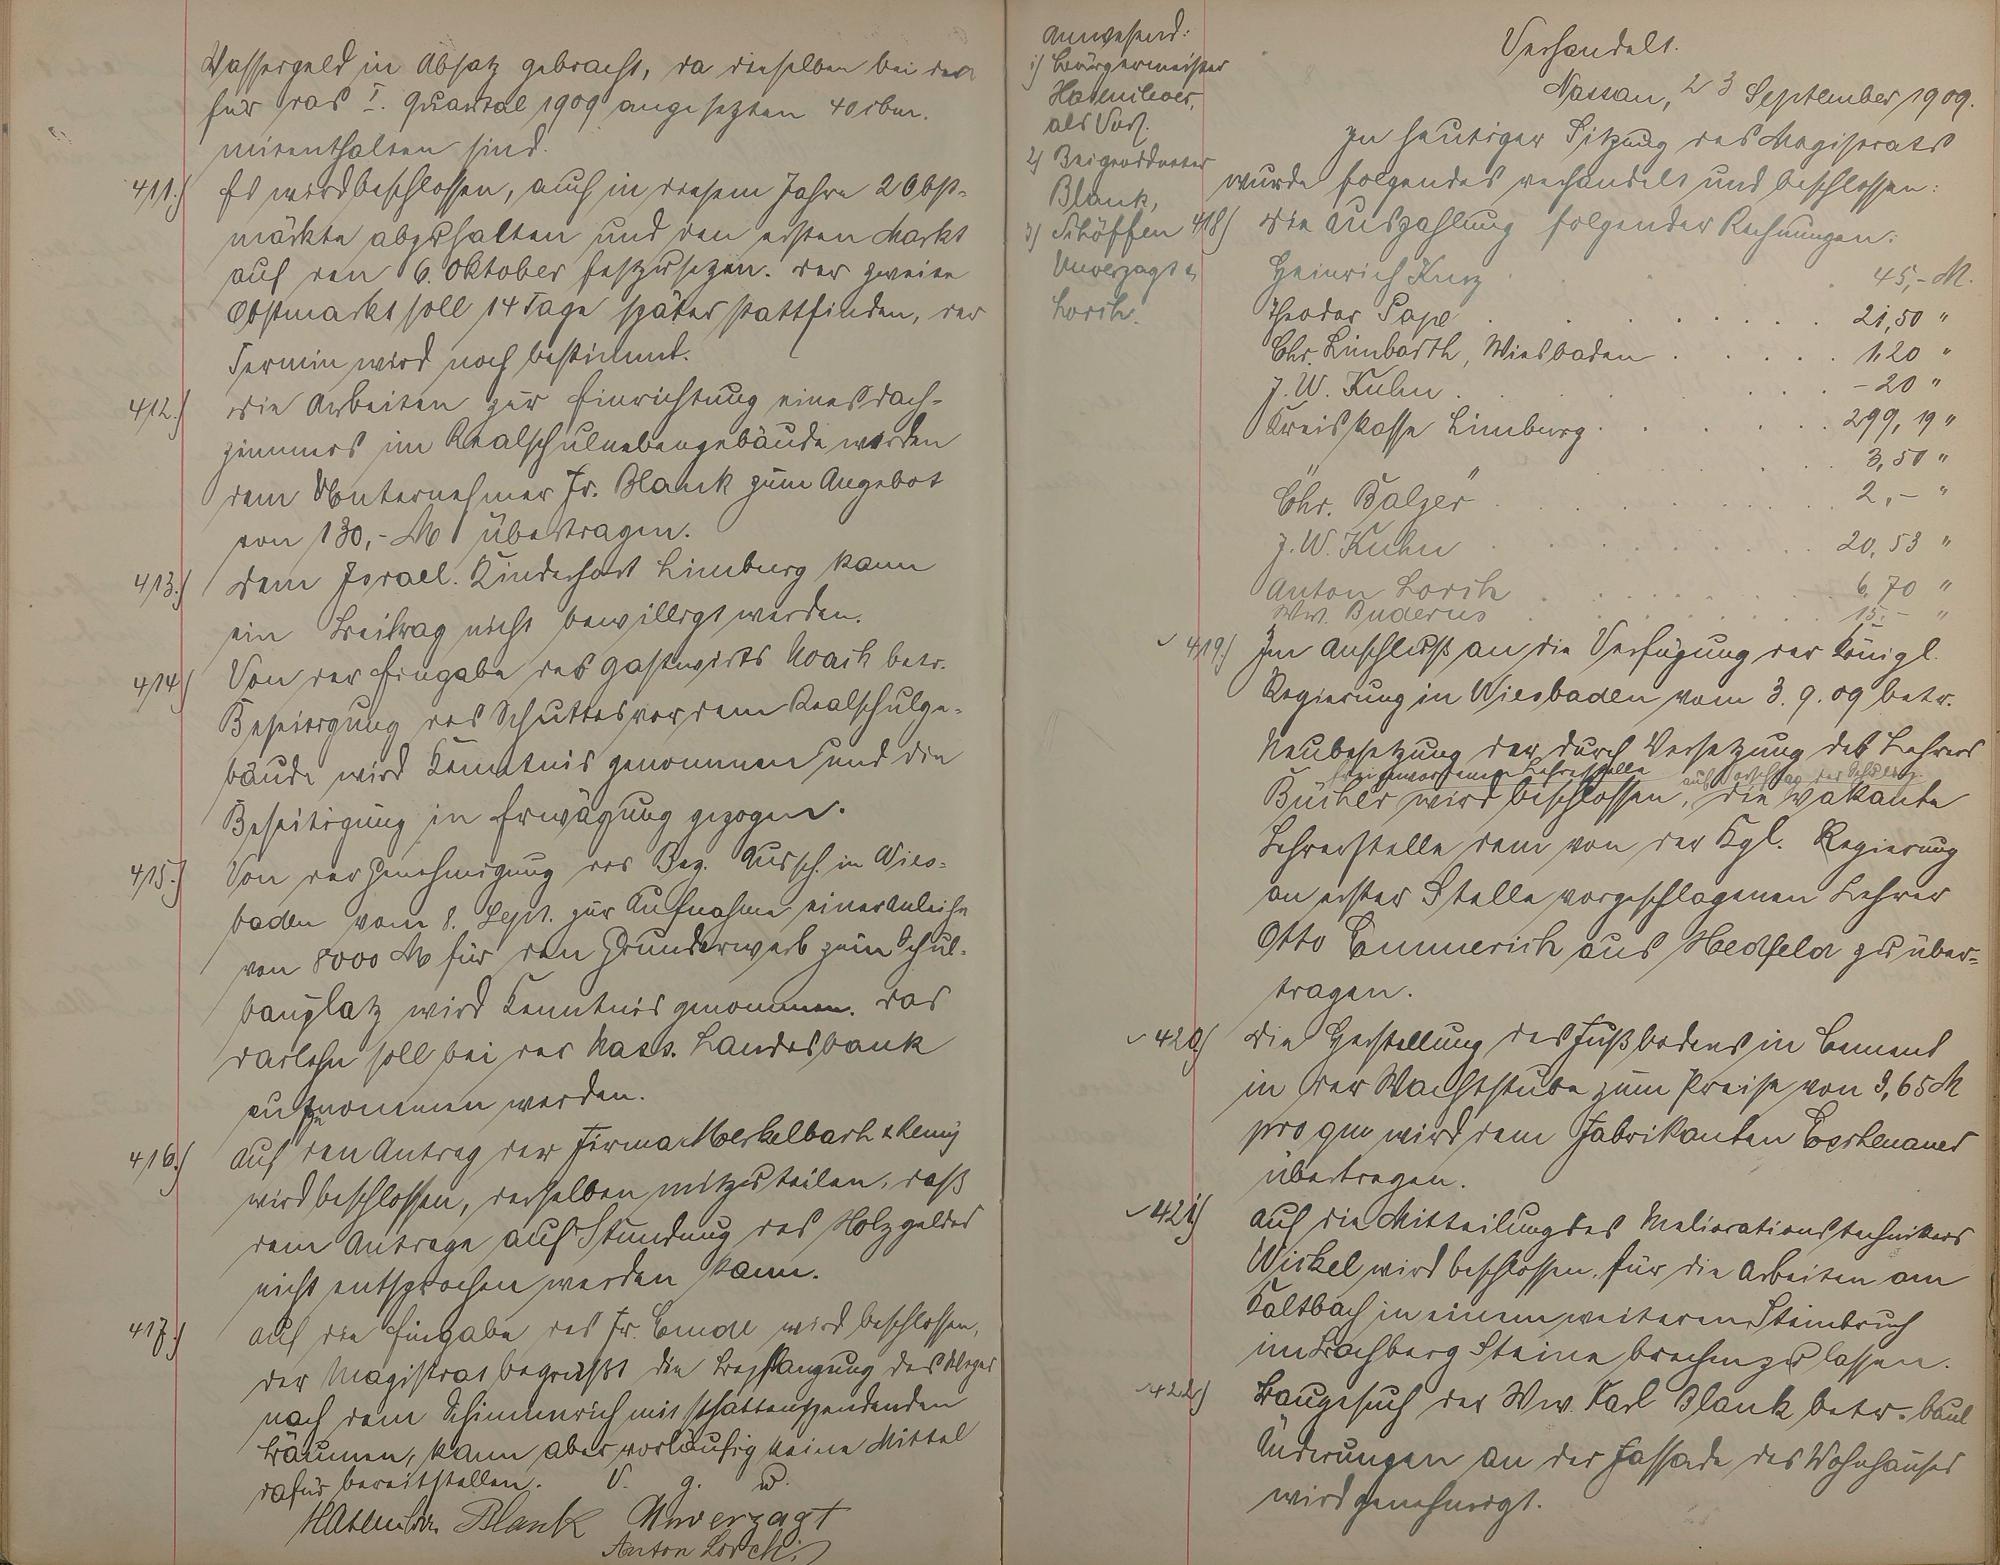 Wassergeld in Absatz gebracht, da dieselben bei den
für das I. Quartal 1909 angesetzten 40 cbm.
mitenthalten sind.
411.) Es wird beschlossen, auch in diesem Jahre 2 Obst-
märkte abzuhalten und den ersten Markt
auf den 6. Oktober festzusetzen. Der zweite
Obstmarkt soll 14 Tage später stattfinden, der
Termin wird noch bestimmt.
412.) Die Arbeiten zur Einrichtung eines Dach-
zimmers im Realschulnebengebäude werden
dem Unternehmer Fr. Blank zum Angebot
von 130,- M übertragen.
413.) Dem Israel. Kinderhort Limburg kann
ein Beitrag nicht bewilligt werden.
414) Von der Eingabe des Gastwirts Noack betr.
Beseitigung des Schuttes vor dem Realschulge-
bäude wird Kenntnis genommen und die
Beseitigung in Erwägung gezogen.
415.) Von der Genehmigung des Bez. Aussch. in Wies-
baden vom 8. Sept. zur Aufnahme einer Anleihe
von 8000 M für den Grunderwerb zum Schul-
bauplatz wird Kenntnis genommen. Das
Darlehn soll bei der Nass. Landesbank
aufgenommen werden.
416.) Auf den Antrag der Firma Merkelbach & Remy
wird beschlossen, derselben mitzuteilen, daß
dem Antrage auf Stundung des Holzgeldes
nicht entsprochen werden kann.
417.) Auf die Eingabe des Fr. Emde wird beschlossen,
der Magistrat begrüßt die Bepflanzung des Weges
nach dem Schimmerich mit schattenspendenden
Bäumen, kann aber vorläufig keine Mittel
dafür bereitstellen. V. g. u.
Hasenclever Blank Unverzagt
Anton Lorch.
Anwesend:
1) Bürgermeister
Hasenclever,
als Vors.
2) Beigeordneter
Blank,
3) Schöffen
Unverzagt &
Lorch.
Verhandelt.
Nassau, 23 September 1909.
In heutiger Sitzung des Magistrats
wurde folgendes verhandelt und beschlossen:
418) Die Auszahlung folgender Rechnungen:
Heinrich Kurz 45,- M.
Theodor Pape 21,50 "
Chr. Limbarth, Wiesbaden 1,20 "
J. W. Kuhn - 20 "
Kreiskasse Limburg 299,19 "
" " 3,50 "
Chr. Balzer 2,- "
J. W. Kuhn 20,53 "
Anton Lorch 6,70 "
Ww. Buderus 15,- "
419) Im Anschluß an die Verfügung der Königl.
Regierung in Wiesbaden vom 3. 9. 09 betr.
Neubesetzung der durch Versetzung des Lehrers
frei gewordenen Lehrerstelle auf Vorschlag der Schuldep.
Bücher wird beschlossen, die vakante
Lehrerstelle dem von der Kgl. Regierung
an erster Stelle vorgeschlagenen Lehrer
Otto Emmerich aus Hedfeld zu über-
tragen.
420) Die Herstellung des Fußbodens in Cement
in der Wachtstube zum Preise von 3,65 M
pro qm wird dem Fabrikanten
übertragen.
421) Auf die Mitteilung des Meliorationstechnikers
Wickel wird beschlossen, für die Arbeiten am
Kaltbach in einem weiteren Steinbruch
im Bachberg Steine brechen zu lassen.
422) Baugesuch der Ww. Karl Blank betr. baul
Änderungen an der Fassade des Wohnhauses
wird genehmigt.